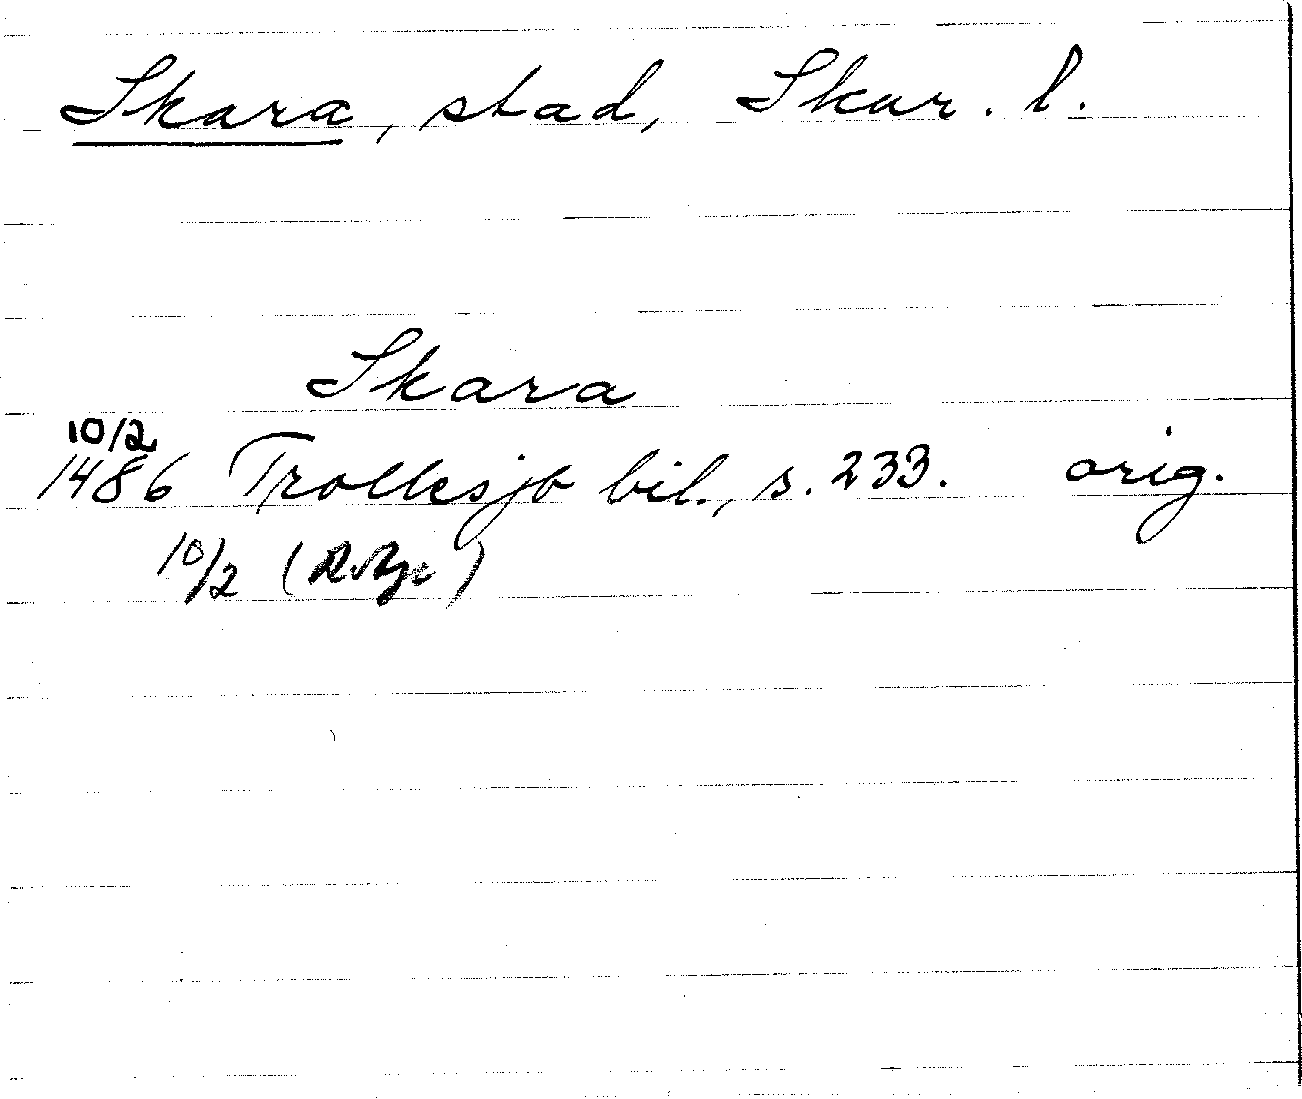 Skara, stad, Skar. l.
Skara
10/2
1486 Trolles jb bil., s. 233. orig.
10/2 (